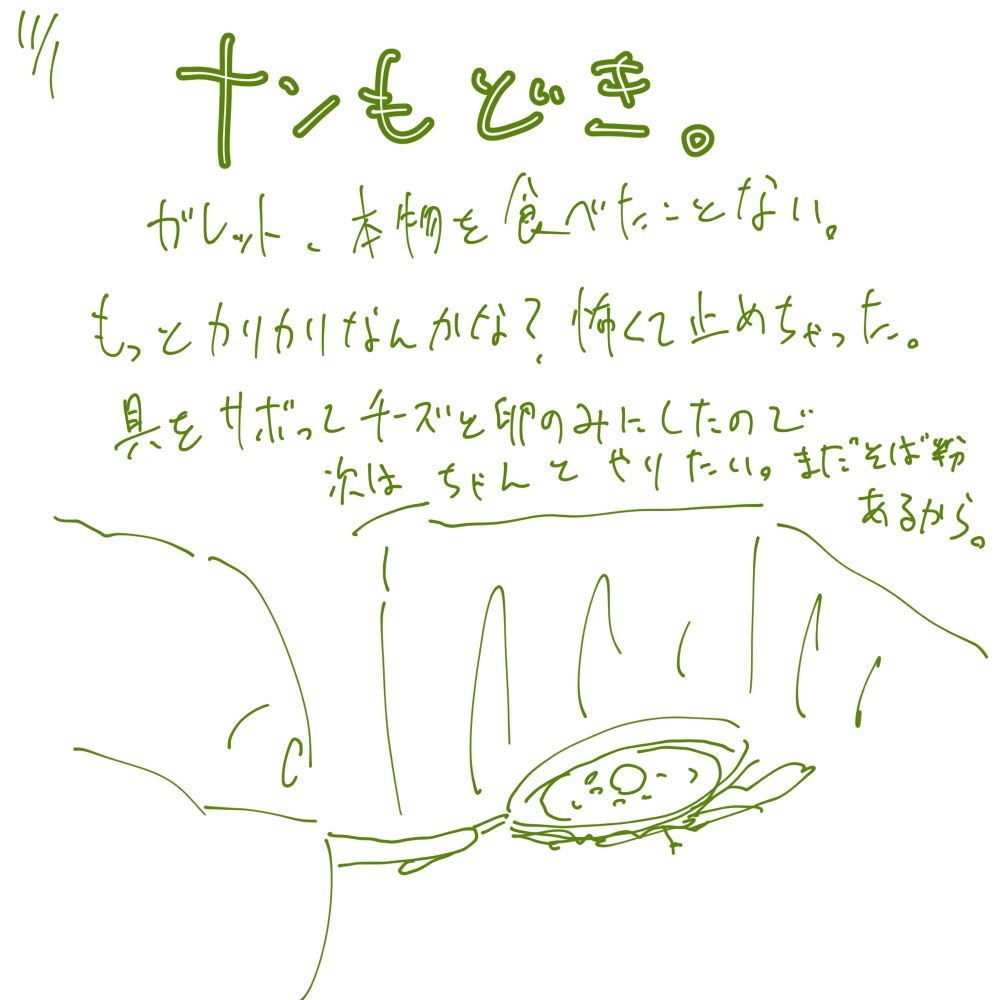 ナンもどき。
ガレット、本物を食べたことない。
もっとカリカリなんかな？怖くて止めちゃった。
具をサボってチーズと卵のみにしたので
次はちゃんとやりたい。まだそば粉
あるから。